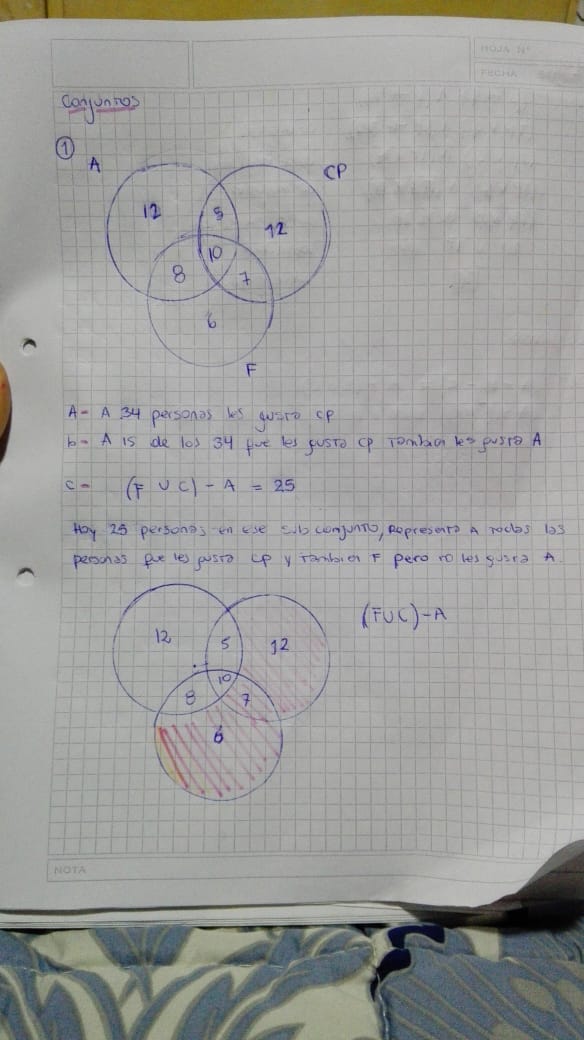 HOJA N°
FECHA
Conjuntos
1
A
CP
12
5
12
10
8
7
6
F
A= A 34 personas les gusta CP
b= A 15 de los 34 que les gusta CP Tambien les gusta A
c= (F U C) - A = 25
Hay 25 personas en ese subconjunto, Representa A todas las
personas que les gusta CP y Tambien F pero no les gusta A.
12
5
12
(FUC)-A
10
8
7
6
NOTA